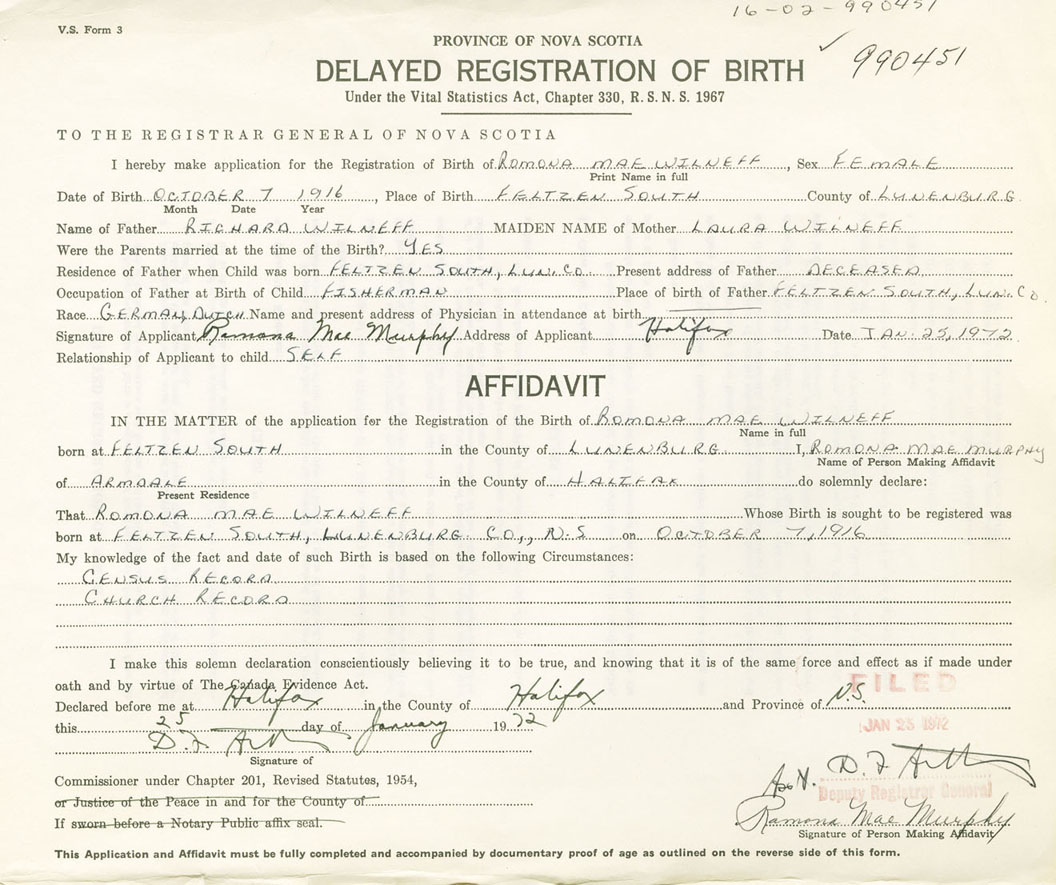 16-02-990451
V.S. Form 3
PROVINCE OF NOVA SCOTIA
990451
DELAYED REGISTRATION OF BIRTH
Under the Vital Statistics Act, Chapter 330, R. S. N. S. 1967
TO THE REGISTRAR GENERAL OF NOVA SCOTIA
I hereby make application for the Registration of Birth of ROMONA MAE WILNEFF, Sex FEMALE
Print Name in full
Date of Birth OCTOBER 7 1916, Place of Birth FELTZEN SOUTH County of LUNENBURG.
Month Date Year
Name of Father RICHARD WILNEFF MAIDEN NAME of Mother LAURA WILNEFF
Were the Parents married at the time of the Birth? YES
Residence of Father when Child was born FELTZEN SOUTH, LUN. CO. Present address of Father DECEASED
Occupation of Father at Birth of Child FISHERMAN Place of birth of Father FELTZEN SOUTH, LUN. CO.
Race GERMAN, DUTCH Name and present address of Physician in attendance at birth
Signature of Applicant Ramona Mae Murphy Address of Applicant Halifax Date JAN. 25, 1972
Relationship of Applicant to child SELF
AFFIDAVIT
IN THE MATTER of the application for the Registration of the Birth of ROMONA MAE WILNEFF
Name in full
born at FELTZEN SOUTH in the County of LUNENBURG I, ROMONA MAE MURPHY
Name of Person Making Affidavit
of ARMDALE in the County of HALIFAX do solemnly declare:
Present Residence
That ROMONA MAE WILNEFF Whose Birth is sought to be registered was
born at FELTZEN SOUTH, LUNENBURG CO., N.S. on OCTOBER 7, 1916
My knowledge of the fact and date of such Birth is based on the following Circumstances:
CENSUS RECORD
CHURCH RECORD
I make this solemn declaration conscientiously believing it to be true, and knowing that it is of the same force and effect as if made under
oath and by virtue of The Canada Evidence Act.
FILED
Declared before me at Halifax in the County of Halifax and Province of N.S.
this 25 day of January 1972
JAN 25 1972
D. F.
Signature of
Commissioner under Chapter 201, Revised Statutes, 1954,
or Justice of the Peace in and for the County of
If sworn before a Notary Public affix seal.
D. F.
Deputy Registrar General
Ramona Mae Murphy
Signature of Person Making Affidavit
This Application and Affidavit must be fully completed and accompanied by documentary proof of age as outlined on the reverse side of this form.